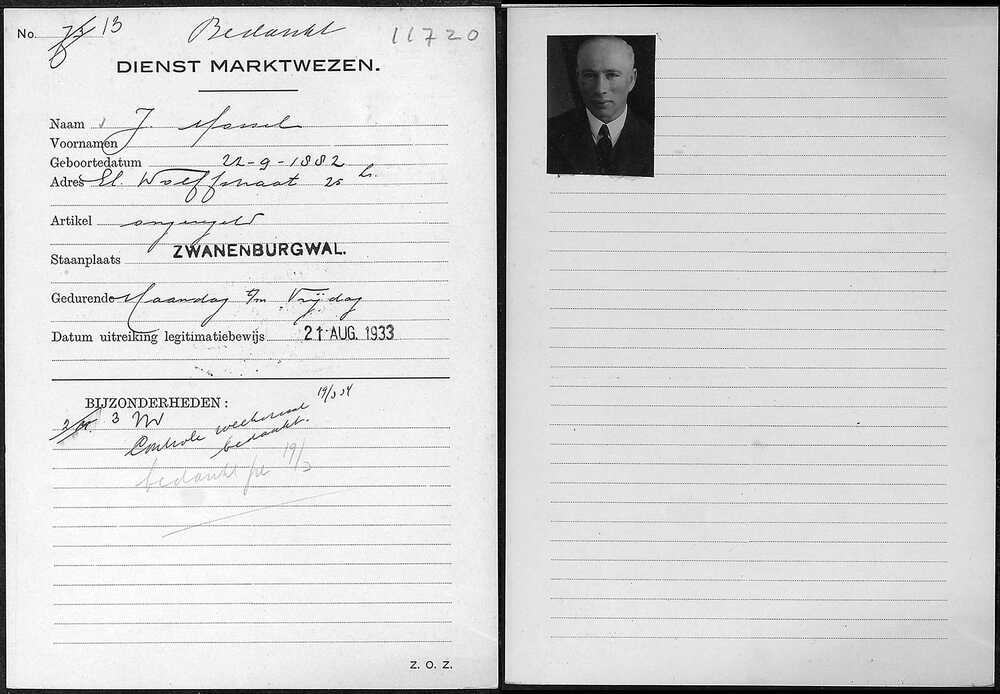 No. 75 13 Bedankt 11720
DIENST MARKTWEZEN.
Naam J. Mossel
Voornamen
Geboortedatum 22-9-1882
Adres El. Wolffstraat 25 hs.
Artikel ongeregeld
Staanplaats ZWANENBURGWAL.
Gedurende Maandag t/m Vrijdag
Datum uitreiking legitimatiebewijs 21 AUG. 1933
BIJZONDERHEDEN:
19/3 34
3
Controle
bedankt.
bedankt per 19/3
Z. O. Z.